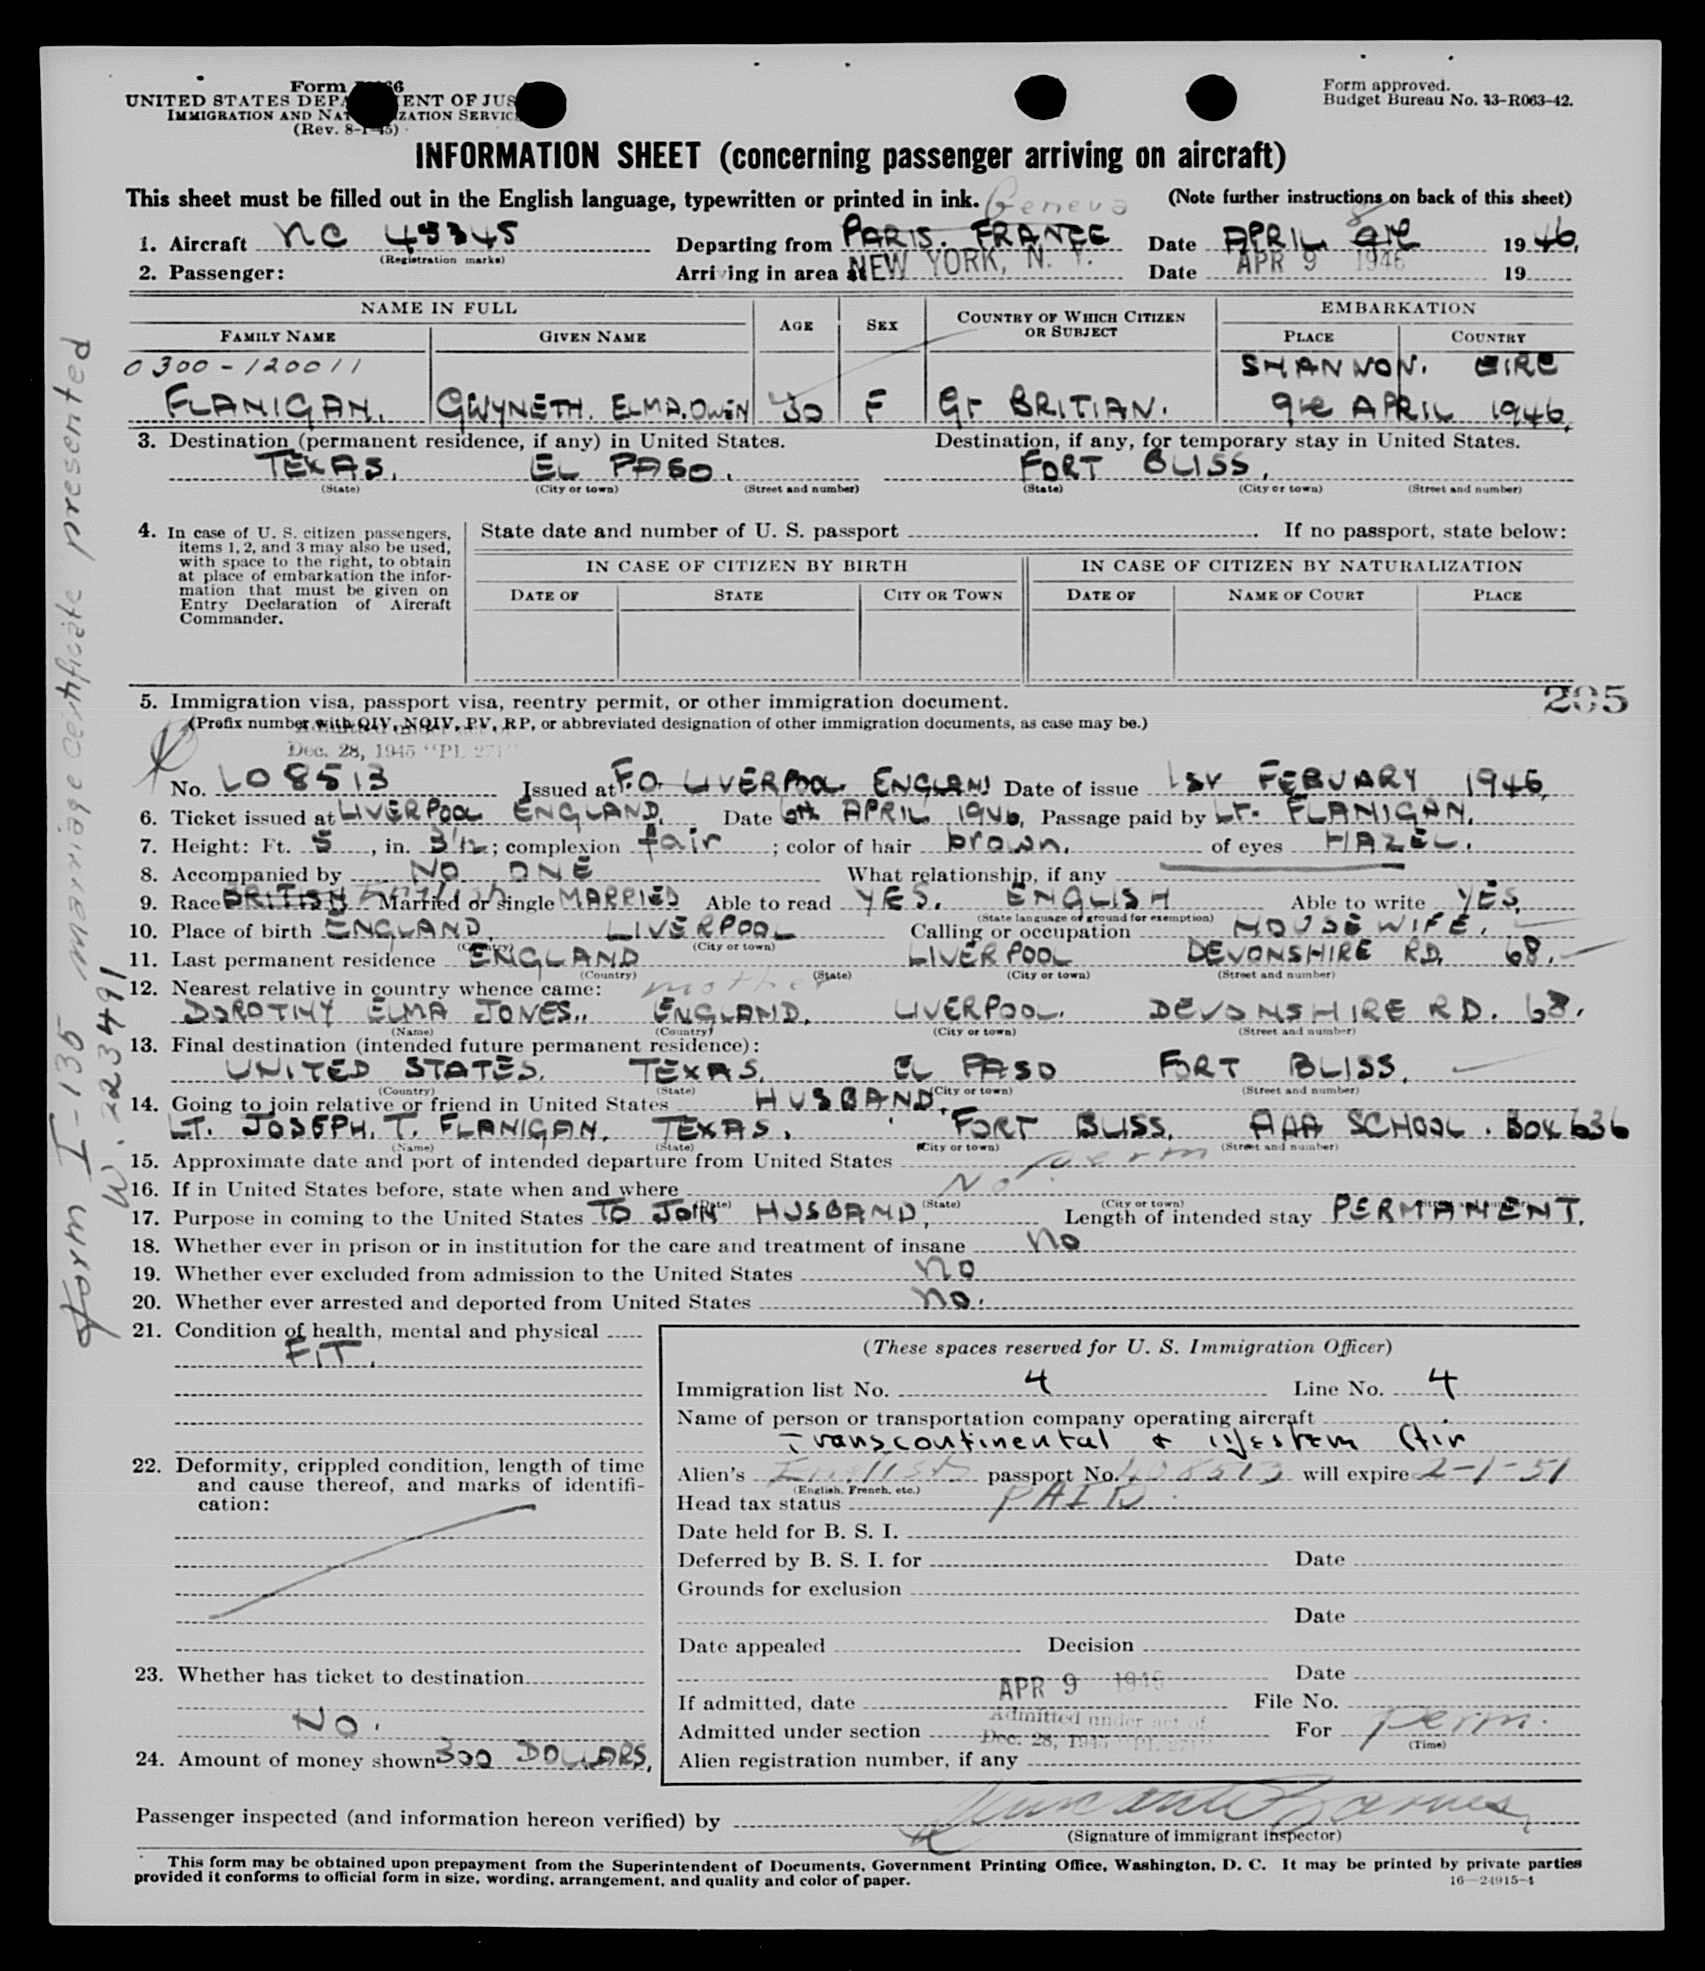 Form
UNITED STATES DEPARTMENT OF JUS
IMMIGRATION AND NATURALIZATION SERVICE
(Rev. 8-1-45)
Form approved.
Budget Bureau No. 43-R063-42.
INFORMATION SHEET (concerning passenger arriving on aircraft)
This sheet must be filled out in the English language, typewritten or printed in ink. (Note further instructions on back of this sheet)
Geneva 8
1. Aircraft NC 45345 Departing from PARIS. FRANCE Date APRIL 9TH 1946.
(Registration marks)
2. Passenger: Arriving in area at NEW YORK, N. Y. Date APR 9 1946 19
NAME IN FULL AGE SEX COUNTRY OF WHICH CITIZEN OR SUBJECT EMBARKATION
FAMILY NAME GIVEN NAME PLACE COUNTRY
0300-120011 SHANNON. EIRE
FLANIGAN. GWYNETH. ELMA. OWEN 30 F Gt BRITIAN. 9TH APRIL 1946.
3. Destination (permanent residence, if any) in United States. Destination, if any, for temporary stay in United States.
TEXAS. EL PASO. FORT BLISS.
(State) (City or town) (Street and number) (State) (City or town) (Street and number)
4. In case of U. S. citizen passengers, items 1, 2, and 3 may also be used, with space to the right, to obtain at place of embarkation the information that must be given on Entry Declaration of Aircraft Commander.
State date and number of U. S. passport . If no passport, state below:
IN CASE OF CITIZEN BY BIRTH IN CASE OF CITIZEN BY NATURALIZATION
DATE OF STATE CITY OR TOWN DATE OF NAME OF COURT PLACE
5. Immigration visa, passport visa, reentry permit, or other immigration document.
205
(Prefix number with QIV, NQIV, PV, RP, or abbreviated designation of other immigration documents, as case may be.)
Admitted under act of
Dec. 28, 1945 "PL 271"
No. LO 8513 Issued at F.O. LIVERPOOL ENGLAND Date of issue 1ST FEBUARY 1946.
6. Ticket issued at LIVERPOOL ENGLAND. Date 6th APRIL 1946. Passage paid by LT. FLANIGAN.
7. Height: Ft. 5, in. 3 1/2; complexion fair; color of hair brown. of eyes HAZEL.
8. Accompanied by NO ONE What relationship, if any
9. Race BRITISH English Married or single MARRIED Able to read YES. ENGLISH Able to write YES.
(State language or ground for exemption)
10. Place of birth ENGLAND. LIVERPOOL Calling or occupation HOUSEWIFE.
(Country) (City or town)
11. Last permanent residence ENGLAND LIVERPOOL DEVONSHIRE RD. 68.
(Country) (State) (City or town) (Street and number)
12. Nearest relative in country whence came: mother
DOROTHY ELMA JONES.. ENGLAND. LIVERPOOL. DEVONSHIRE RD. 68.
(Name) (Country) (City or town) (Street and number)
13. Final destination (intended future permanent residence):
UNITED STATES. TEXAS. EL PASO FORT BLISS.
(Country) (State) (City or town) (Street and number)
14. Going to join relative or friend in United States HUSBAND.
LT. JOSEPH. T. FLANIGAN. TEXAS. FORT BLISS. AAA SCHOOL. BOX 636
(Name) (State) (City or town) (Street and number)
15. Approximate date and port of intended departure from United States perm
16. If in United States before, state when and where No.
(Date) (State) (City or town)
17. Purpose in coming to the United States TO JOIN HUSBAND. Length of intended stay PERMANENT.
18. Whether ever in prison or in institution for the care and treatment of insane NO
19. Whether ever excluded from admission to the United States NO
20. Whether ever arrested and deported from United States NO.
21. Condition of health, mental and physical
FIT.
22. Deformity, crippled condition, length of time and cause thereof, and marks of identification:
23. Whether has ticket to destination
NO.
24. Amount of money shown 300 DOLLARS.
(These spaces reserved for U. S. Immigration Officer)
Immigration list No. 4 Line No. 4
Name of person or transportation company operating aircraft
Transcontinental & Western Air
Alien's English passport No. LO8513 will expire 2-1-51
(English, French, etc.)
Head tax status PAID
Date held for B. S. I.
Deferred by B. S. I. for Date
Grounds for exclusion
Date
Date appealed Decision
Date
If admitted, date APR 9 1946 File No.
Admitted under section Admitted under act of Dec. 28, 1945 "PL 271" For Perm.
(Time)
Alien registration number, if any
Passenger inspected (and information hereon verified) by
(Signature of immigrant inspector)
This form may be obtained upon prepayment from the Superintendent of Documents, Government Printing Office, Washington, D. C. It may be printed by private parties
provided it conforms to official form in size, wording, arrangement, and quality and color of paper. 16—24915-1
Form I-135 marriage certificate presented
W. 223491